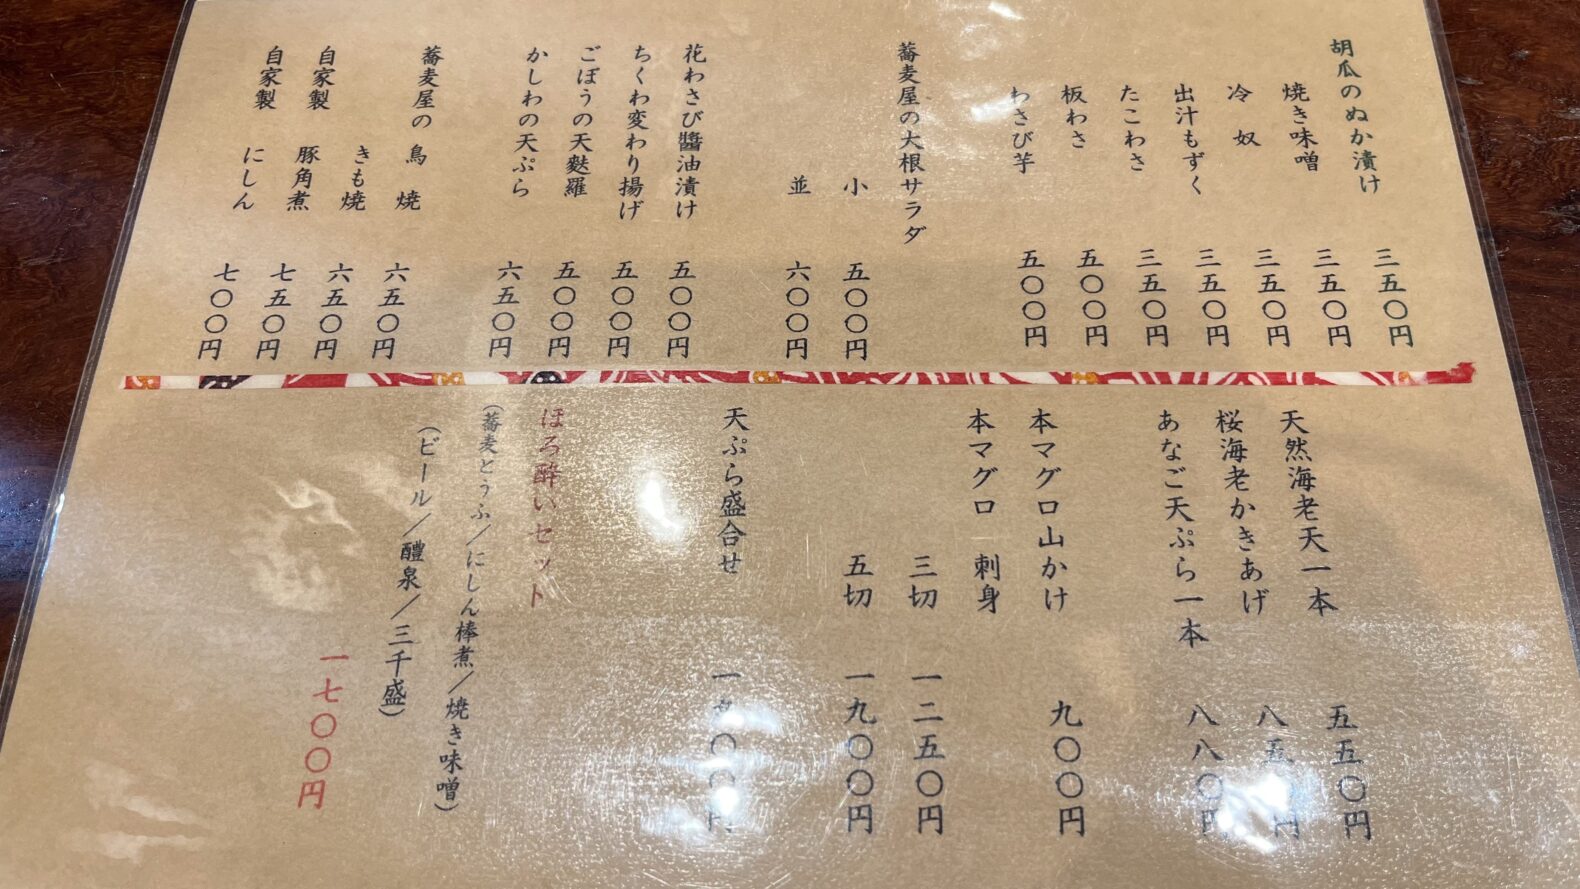 胡瓜のぬか漬け 三五〇円
焼き味噌 三五〇円
冷奴 三五〇円
出汁もずく 三五〇円
たこわさ 三五〇円
板わさ 五〇〇円
わさび芋 五〇〇円
蕎麦屋の大根サラダ
小 五〇〇円
並 六〇〇円
花わさび醬油漬け 五〇〇円
ちくわ変わり揚げ 五〇〇円
ごぼうの天麩羅 五〇〇円
かしわの天ぷら 六五〇円
蕎麦屋の 鳥焼 六五〇円
きも焼 六五〇円
自家製 豚角煮 七五〇円
自家製 にしん 七〇〇円
天然海老天一本 五五〇円
桜海老かきあげ 八五〇円
あなご天ぷら一本 八八〇円
本マグロ山かけ 九〇〇円
本マグロ 刺身
三切 一二五〇円
五切 一九〇〇円
天ぷら盛合せ
ほろ酔いセット
(蕎麦とうふ/にしん棒煮/焼き味噌)
(ビール/醴泉/三千盛)
一七〇〇円